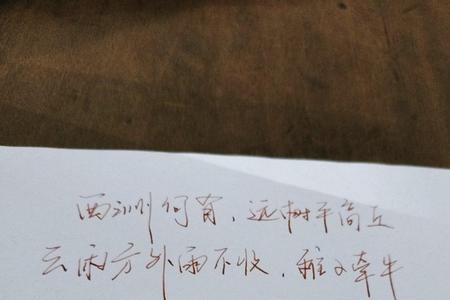 西洲何有，远树平高丘
云闲方外雨不收，稚子牵牛